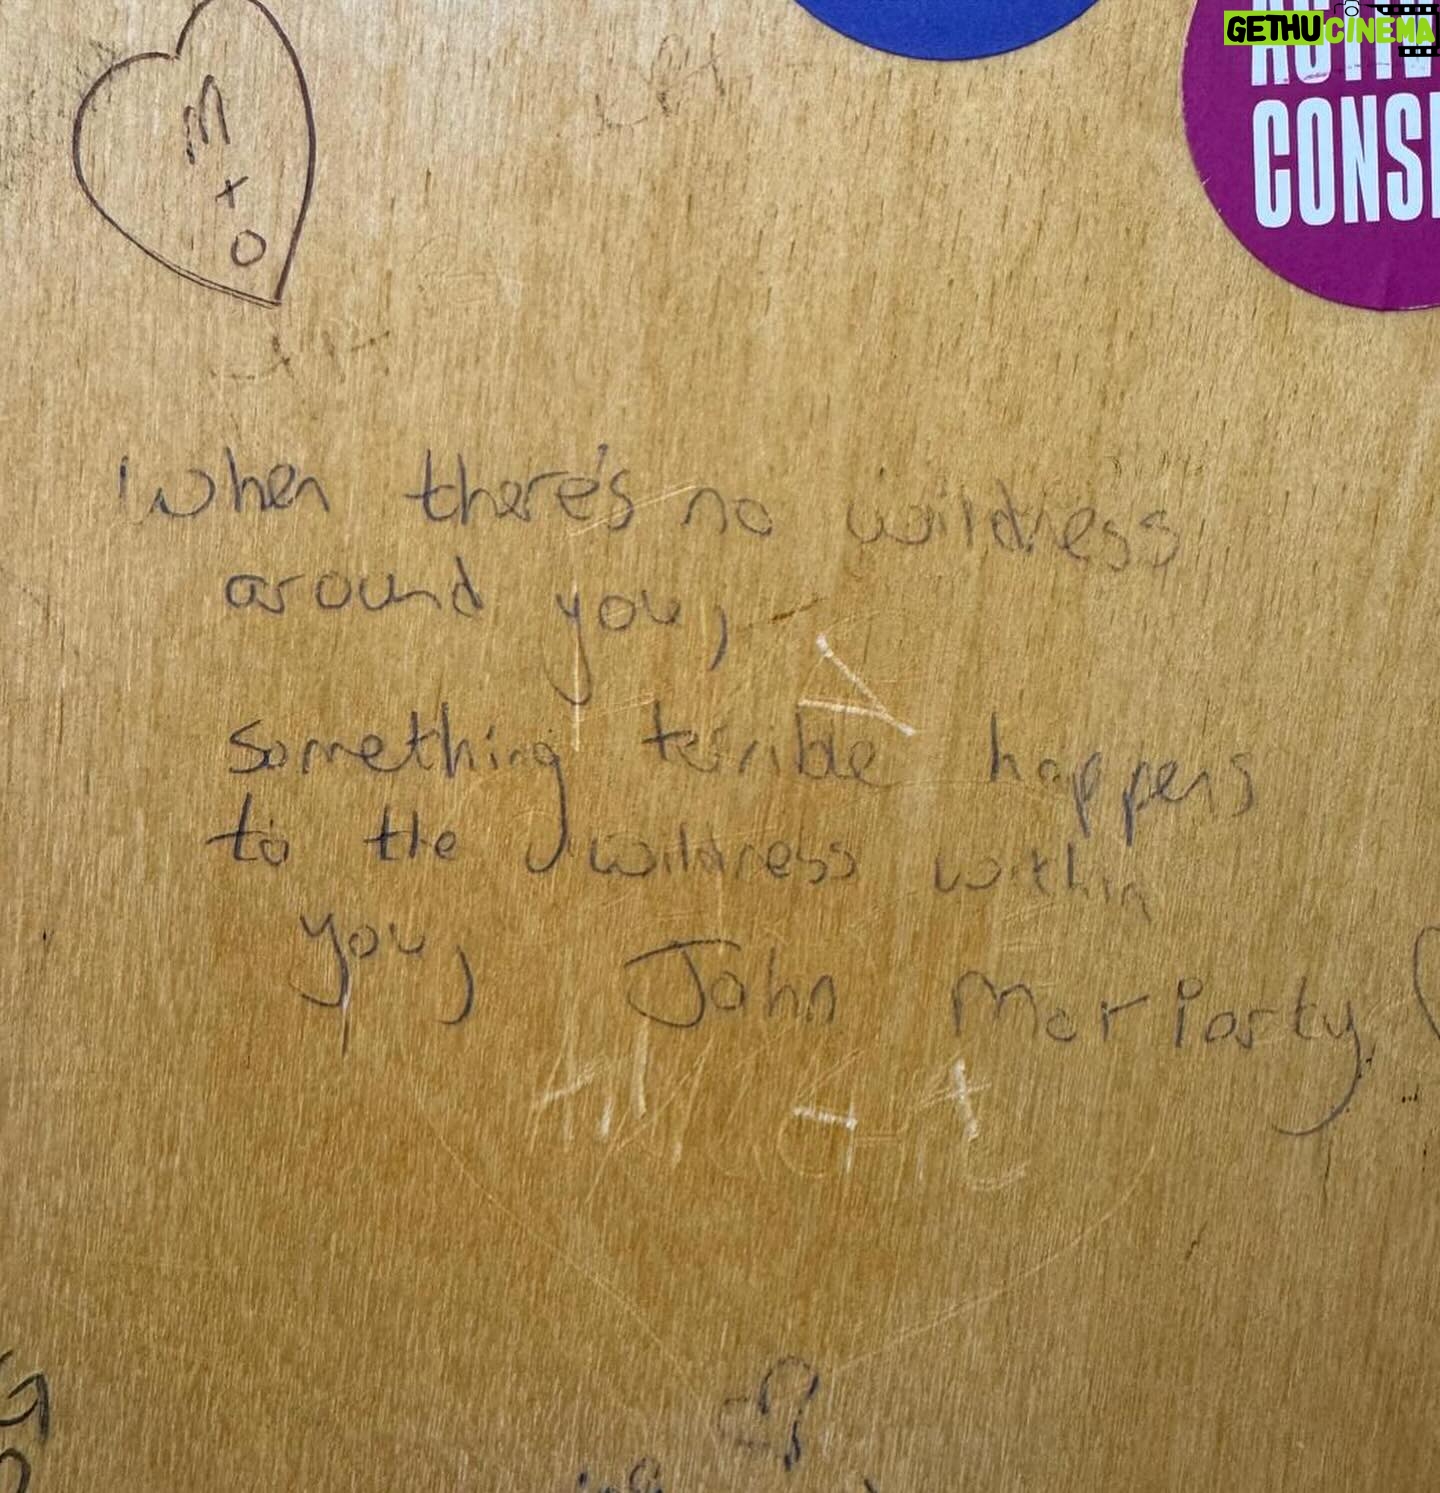 GETHUCINEMA
CONS
M
+
O
When there's no wildness
around you,
something terrible happens
to the wildness within
you, John Moriarty